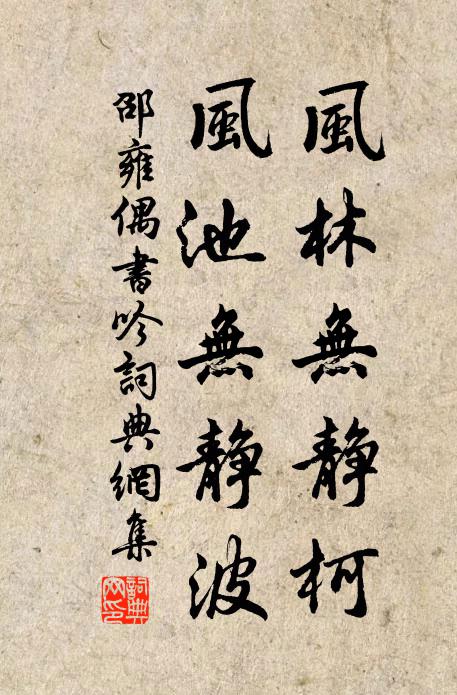 風林無靜柯
風池無靜波
邵雍偶書吟詞典網集
詞典
网印